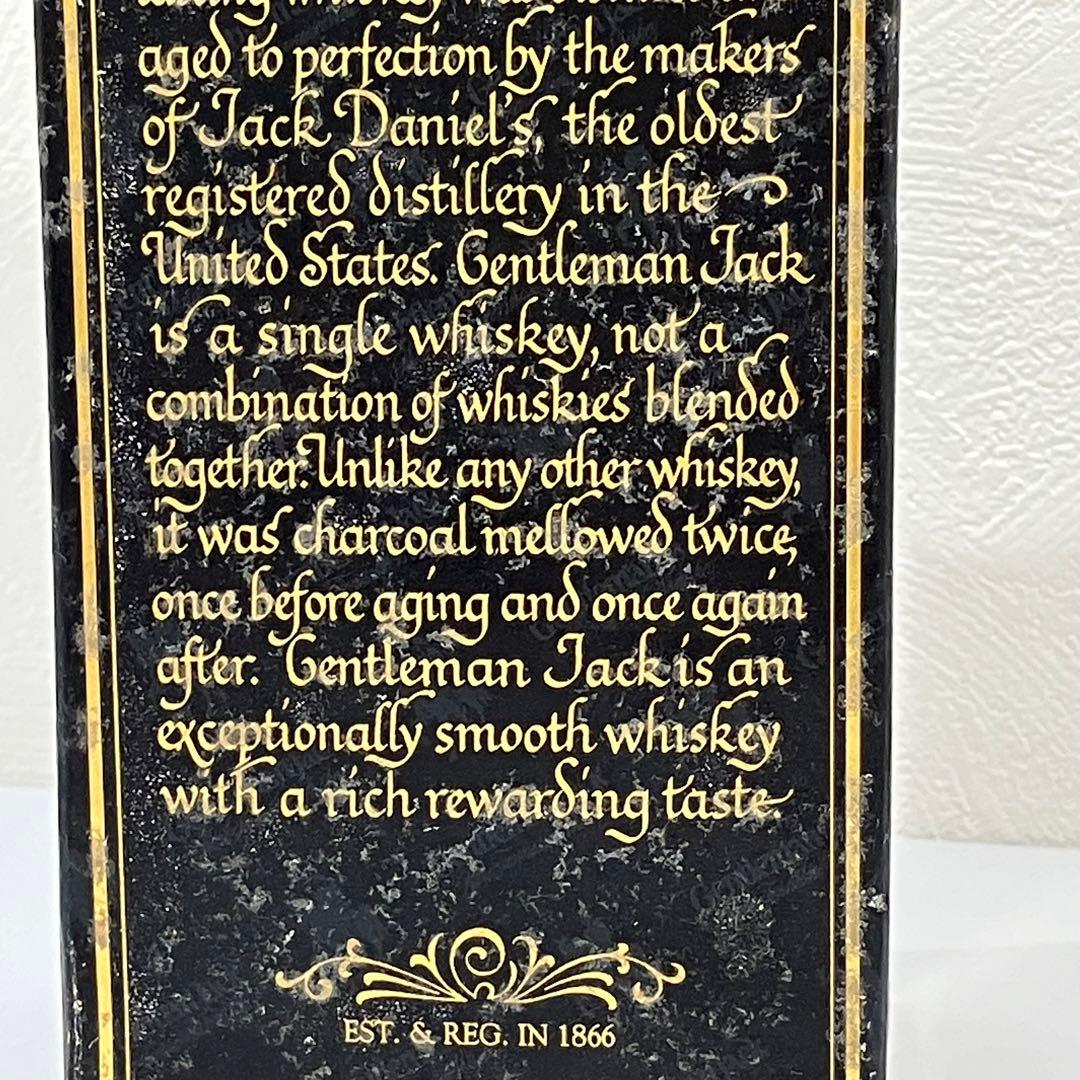 whiskey was
aged to perfection by the makers
of Jack Daniel's, the oldest
registered distillery in the
United States. Gentleman Jack
is a single whiskey, not a
combination of whiskies blended
together. Unlike any other whiskey,
it was charcoal mellowed twice,
once before aging and once again
after. Gentleman Jack is an
exceptionally smooth whiskey
with a rich rewarding taste.
EST. & REG. IN 1866